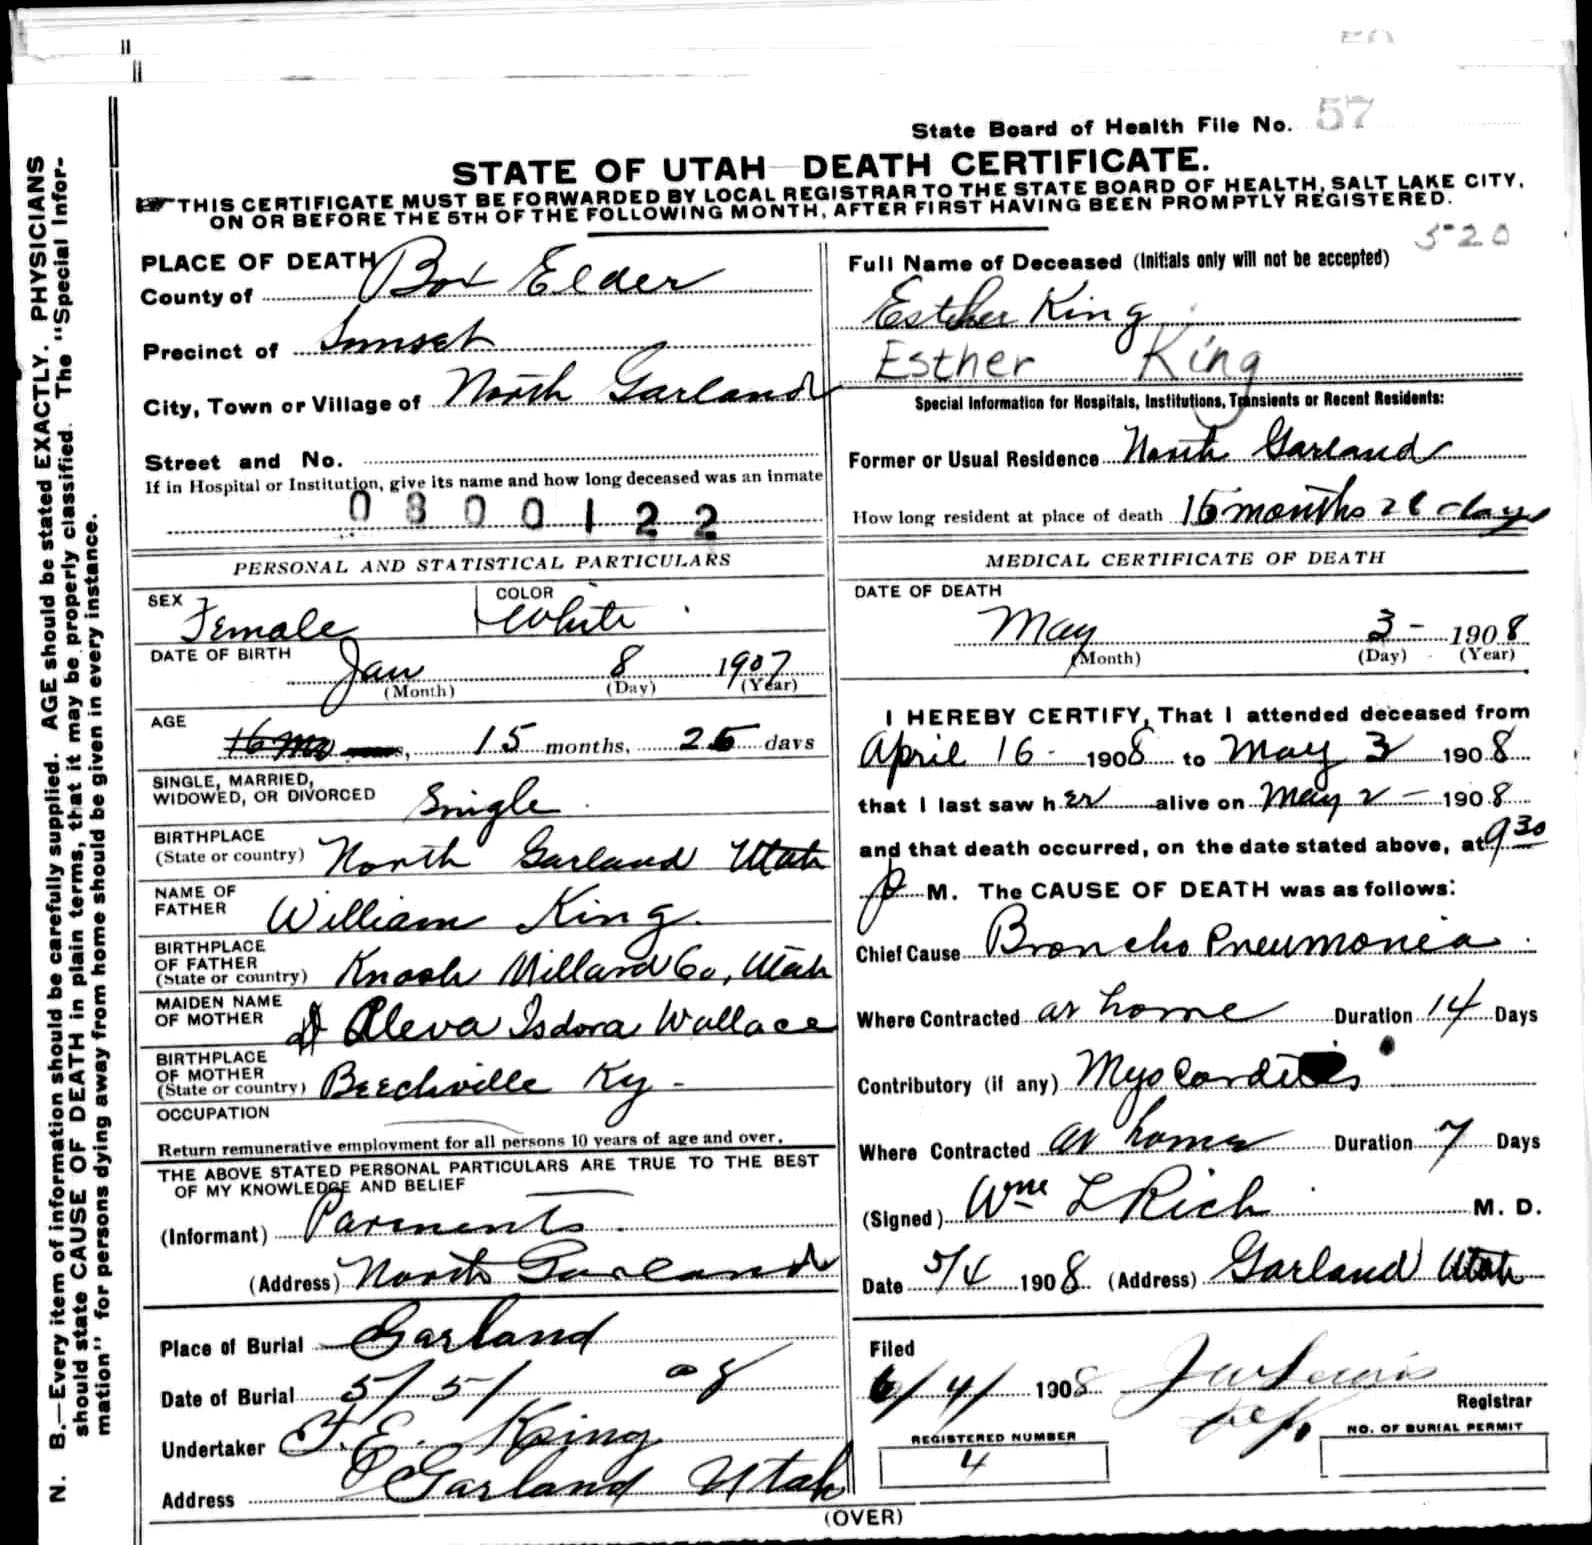 State Board of Health File No. 57
STATE OF UTAH DEATH CERTIFICATE.
THIS CERTIFICATE MUST BE FORWARDED BY LOCAL REGISTRAR TO THE STATE BOARD OF HEALTH, SALT LAKE CITY,
ON OR BEFORE THE 5TH OF THE FOLLOWING MONTH, AFTER FIRST HAVING BEEN PROMPTLY REGISTERED.
520
N. B.—Every item of information should be carefully supplied. AGE should be stated EXACTLY. PHYSICIANS
should state CAUSE OF DEATH in plain terms, that it may be properly classified. The "Special Infor-
mation" for persons dying away from home should be given in every instance.
PLACE OF DEATH
County of Box Elder
Precinct of Sunset
City, Town or Village of North Garland
Street and No.
If in Hospital or Institution, give its name and how long deceased was an inmate
0800122
PERSONAL AND STATISTICAL PARTICULARS
SEX Female COLOR White
DATE OF BIRTH Jan 8 1907
(Month) (Day) (Year)
AGE 15 months, 25 days
SINGLE, MARRIED,
WIDOWED, OR DIVORCED Single
BIRTHPLACE
(State or country) North Garland Utah
NAME OF
FATHER William King.
BIRTHPLACE
OF FATHER
(State or country) Knosh Millard Co, Utah
MAIDEN NAME
OF MOTHER Aleva Isdora Wallace
BIRTHPLACE
OF MOTHER
(State or country) Beechville Ky -
OCCUPATION
Return remunerative employment for all persons 10 years of age and over.
THE ABOVE STATED PERSONAL PARTICULARS ARE TRUE TO THE BEST
OF MY KNOWLEDGE AND BELIEF
(Informant) Parments.
(Address) North Garland
Place of Burial Garland
Date of Burial 5/5/ 08
Undertaker F. E. King
Address Garland Utah
Full Name of Deceased (Initials only will not be accepted)
Esther King
Esther King
Special Information for Hospitals, Institutions, Transients or Recent Residents:
Former or Usual Residence North Garland
How long resident at place of death 15 months 26 days
MEDICAL CERTIFICATE OF DEATH
DATE OF DEATH
May 3 - 1908
(Month) (Day) (Year)
I HEREBY CERTIFY, That I attended deceased from
April 16 - 1908 to May 3 1908
that I last saw her alive on May 2 - 1908
and that death occurred, on the date stated above, at 9 30
p M. The CAUSE OF DEATH was as follows:
Chief Cause Broncho Pneumonia.
Where Contracted at home Duration 14 Days
Contributory (if any) Myocarditis
Where Contracted at home Duration 7 Days
(Signed) Wm L Rich M. D.
Date 5/4 1908 (Address) Garland Utah
Filed
6/4/ 1908 J W Lewis
Registrar
REGISTERED NUMBER
4
NO. OF BURIAL PERMIT
(OVER)